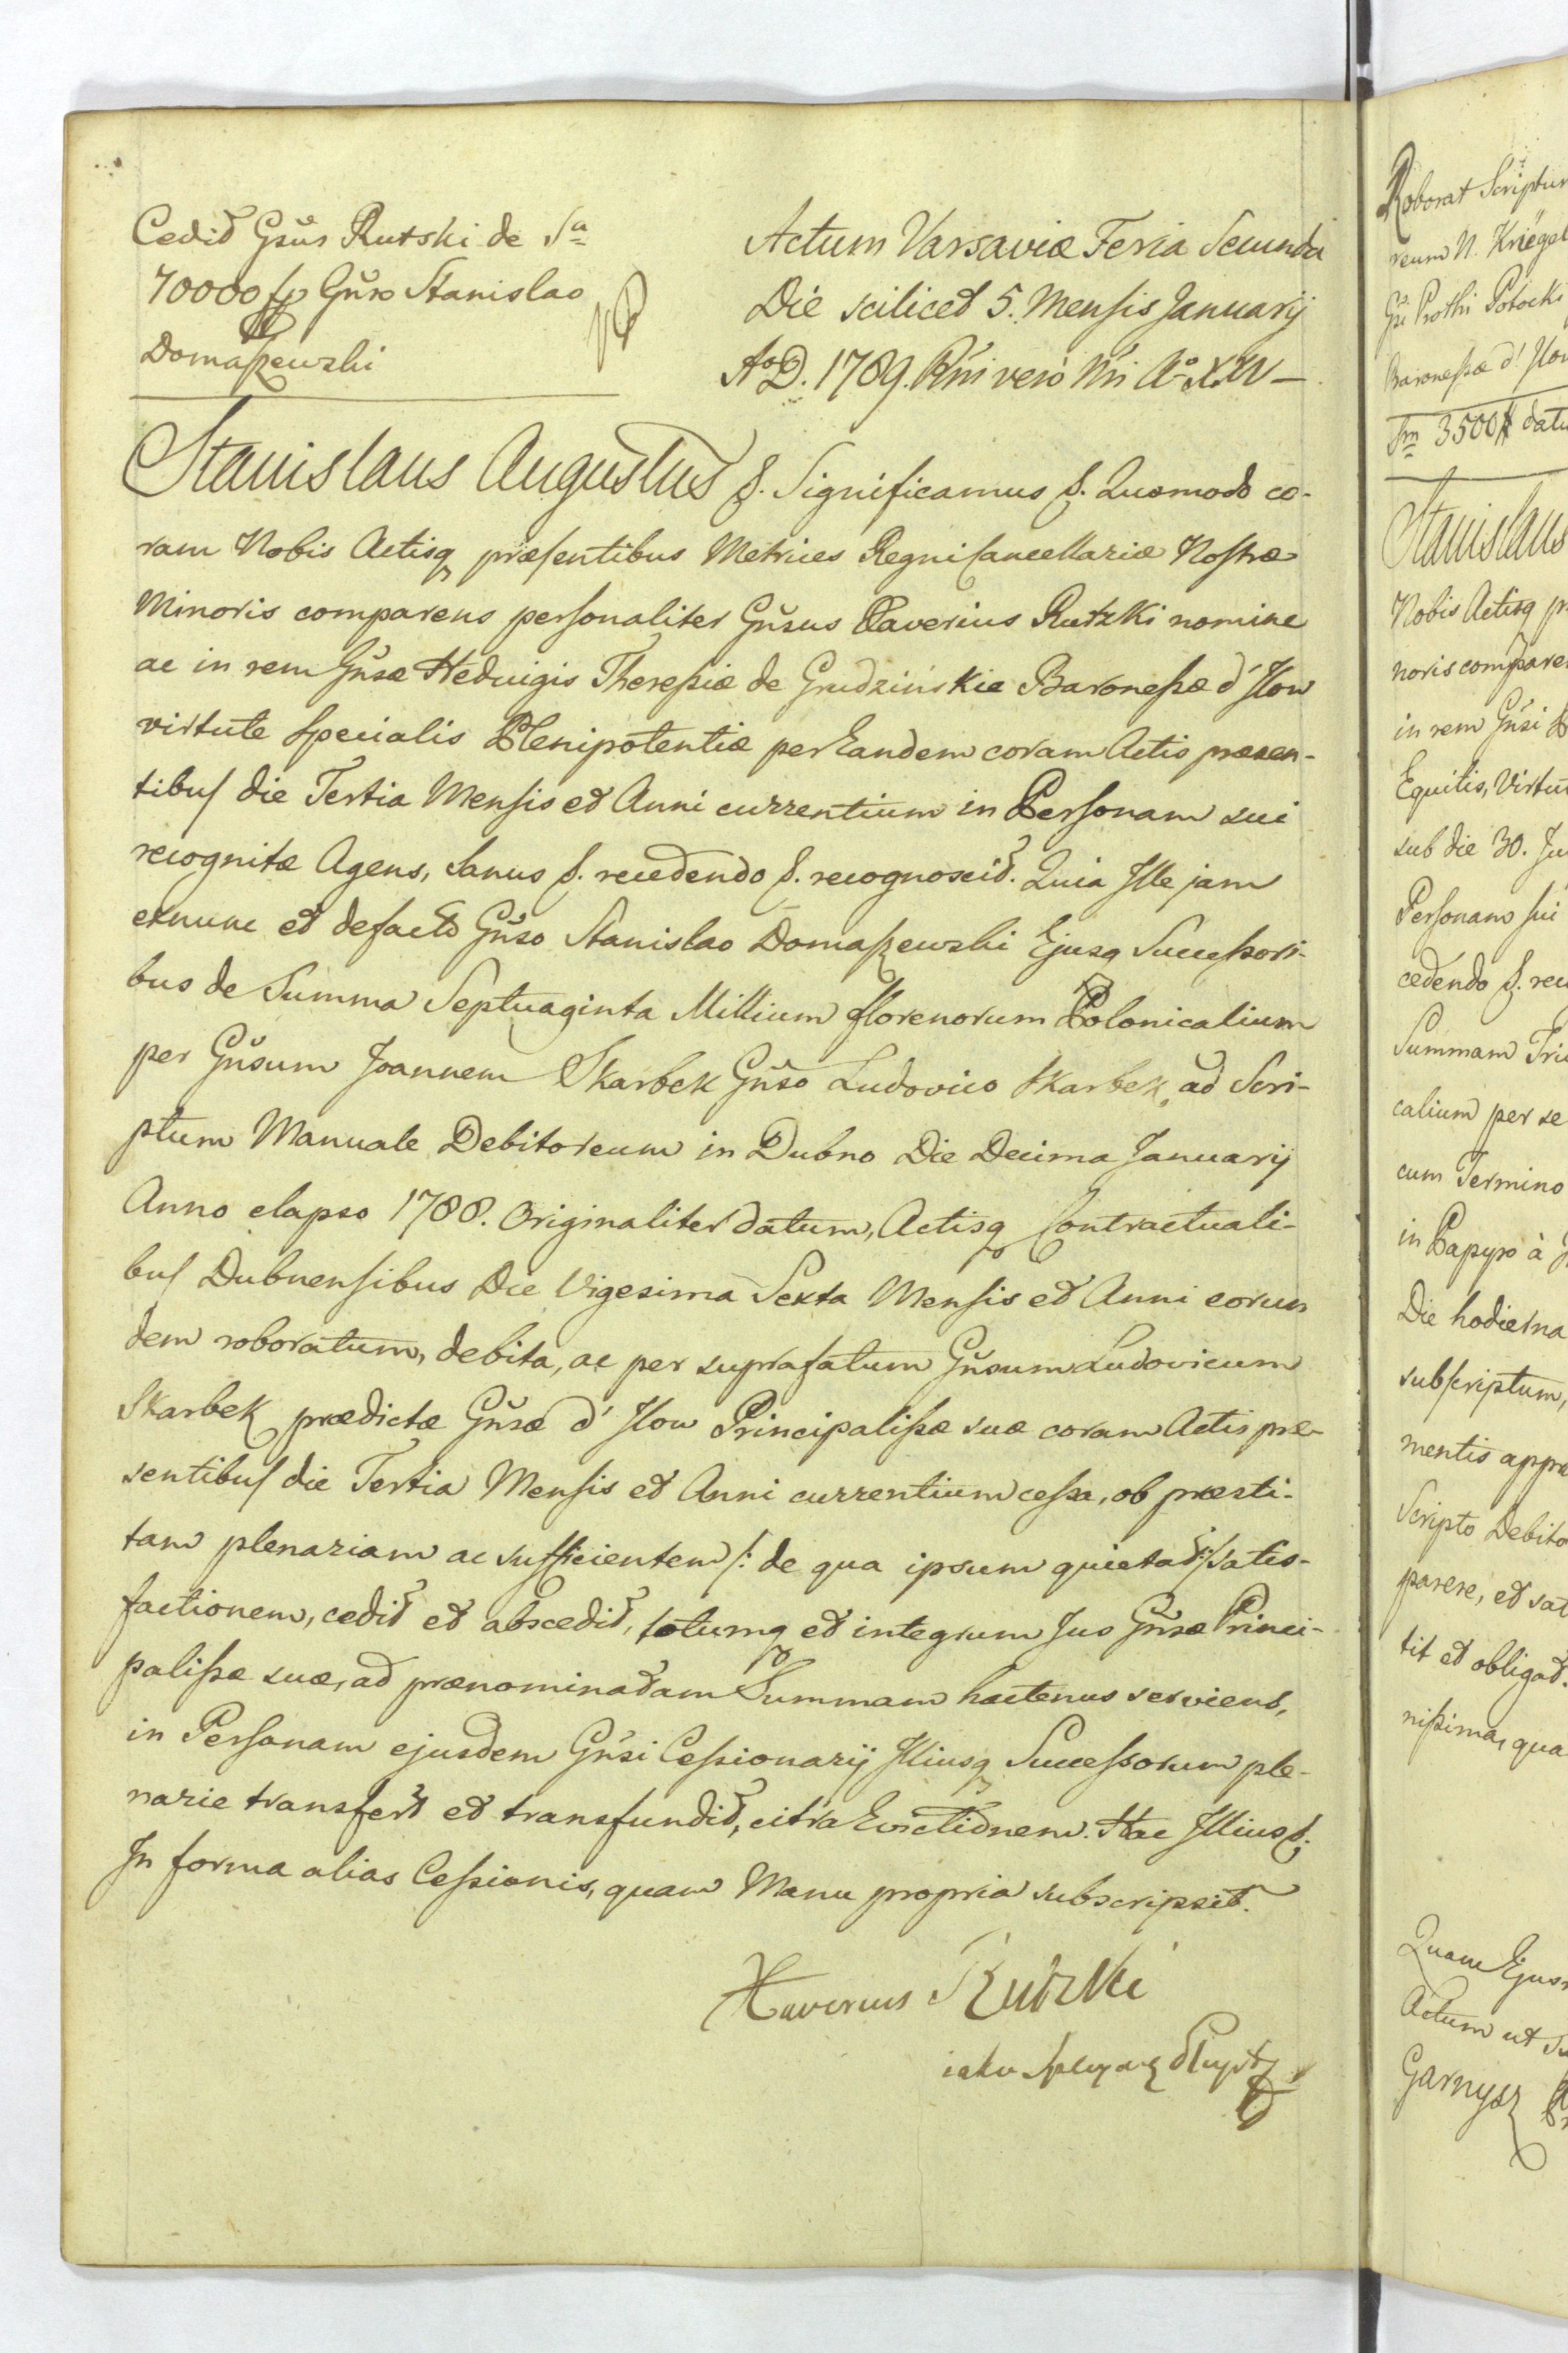 Cedit Gsus Rutski de Sa
70000 fp Gnso Stanislao
Domaszewski
Actum Varsaviæ Feria Secunda
Die scilicet 5. Mensis Januarij
Ao D. 1789. Rni vero Nri Ao XXV —
Stanislaus Augustus &. Significamus &. Quomodo co-
ram Nobis Actisq præsentibus Metrices Regni Cancellariæ Nostræ
Minoris comparens personaliter Gnsus Xaverius Rutzki nomine
ac in rem Gnsæ Heduigis Theresiæ de Grudzińskie Baronessæ d' Ilow
virtute specialis Plenipotentiæ per Eandem coram Actis præsen-
tibus die Tertia Mensis et Anni currentium in Personam sui
recognitæ Agens, Sanus &. recedendo &. recognoscit. Quia Ille jam
exnunc et defacto Gnso Stanislao Domaszewski Ejusq Successori-
bus de Summa Septuaginta Millium florenorum Polonicalium
per Gnsum Joannem Skarbek Gnso Ludovico Skarbek, ad Scri-
ptum Manuale Debitoreum in Dubno Die Decima Januarij
Anno elapso 1788. Originaliter datum, Actisq Contractuali-
bus Dubnensibus Die Vigesima Sexta Mensis et Anni eorun
dem roboratum, debita, ac per suprafatum Gnsum Ludovicum
Skarbek prædictæ Gnsæ d' Ilow Principalissæ suæ coram Actis præ-
sentibus die Tertia Mensis et Anni currentium cessa, ob præsti-
tam plenariam ac sufficientem /: de qua ipsum quietat :/ satis-
factionem, cedit et abscedit, totumq et integrum Jus Gnsæ Princi-
palissæ suæ, ad prænominatam Summam hactenus serviens,
in Personam ejusdem Gnsi Cessionarij Illiusq Successorum ple-
narie transfert et transfundit, citra Evictionem. Hac Illius &.
In forma alias Cessionis, quam Manu propria subscripsit.
Xaverius Rutzki
iako
Roborat Scriptur
reum N. Kriegel
Gsi Prothi Potocki
Baronessæ d' Ilow
Sm 3500 # datu
Stanislaus
Nobis Actisq pr
noris compare
in rem Gnsi
Equitis, Virtut
sub die 30. Ju
Personam sui
cedendo &. rec
Summam Tri
calium per se
cum Termino
in Papyro à
Die hodierna
subscriptum,
mentis appro
Scripto Debito
parere, et sat
tit et obligat.
nissima, qua
Quam Ejus
Actum ut Su
Garnysz